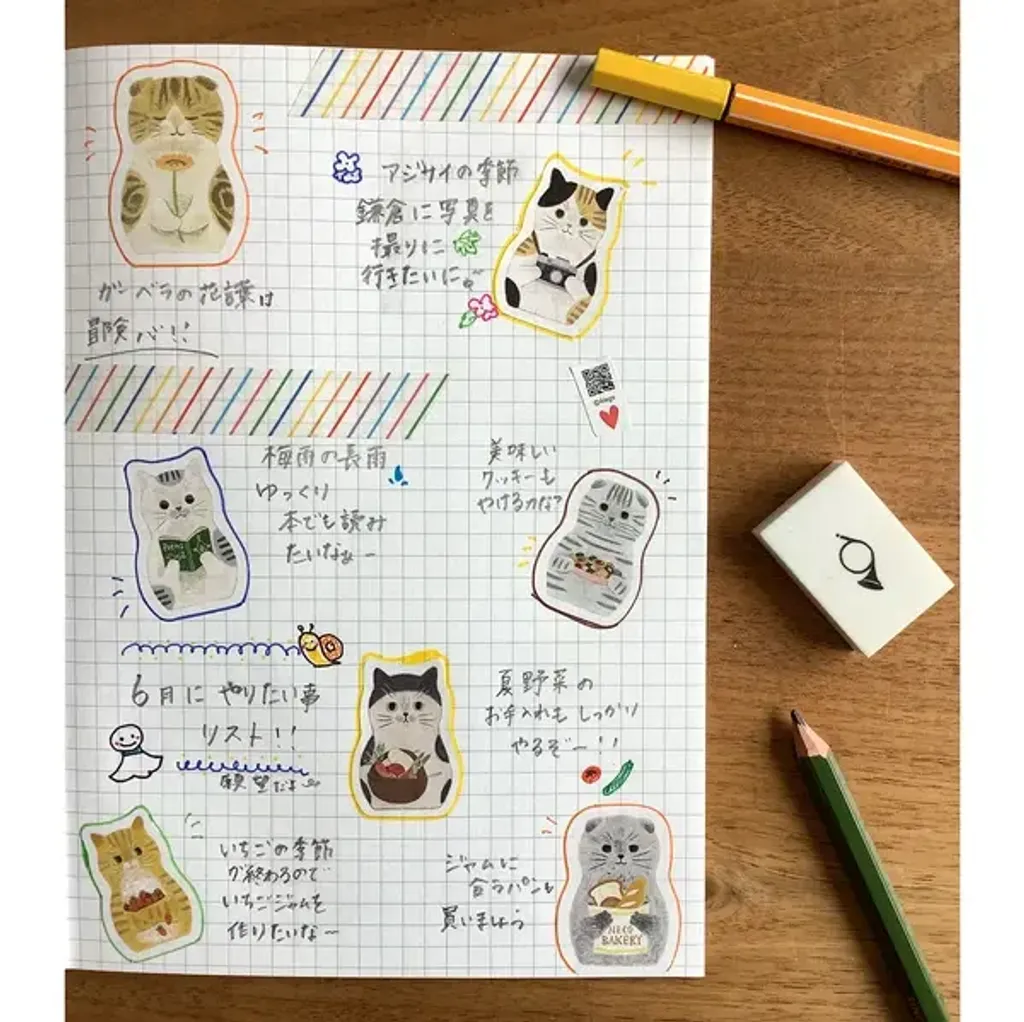 アジサイの季節
鎌倉に写真を
撮りに
行きたいに。
ガーベラの花言葉は
冒険心!!
梅雨の長雨
ゆっくり
本でも読み
たいなぁー
美味しい
クッキーも
やけるかな?
6月にやりたい事
リスト!!
願望だよ
夏野菜の
お手入れも しっかり
やるぞー!!
いちごの季節
が終わるので
いちごジャムを
作りたいなー
ジャムに
合うパンも
買いましょう
NEKO
BAKERY